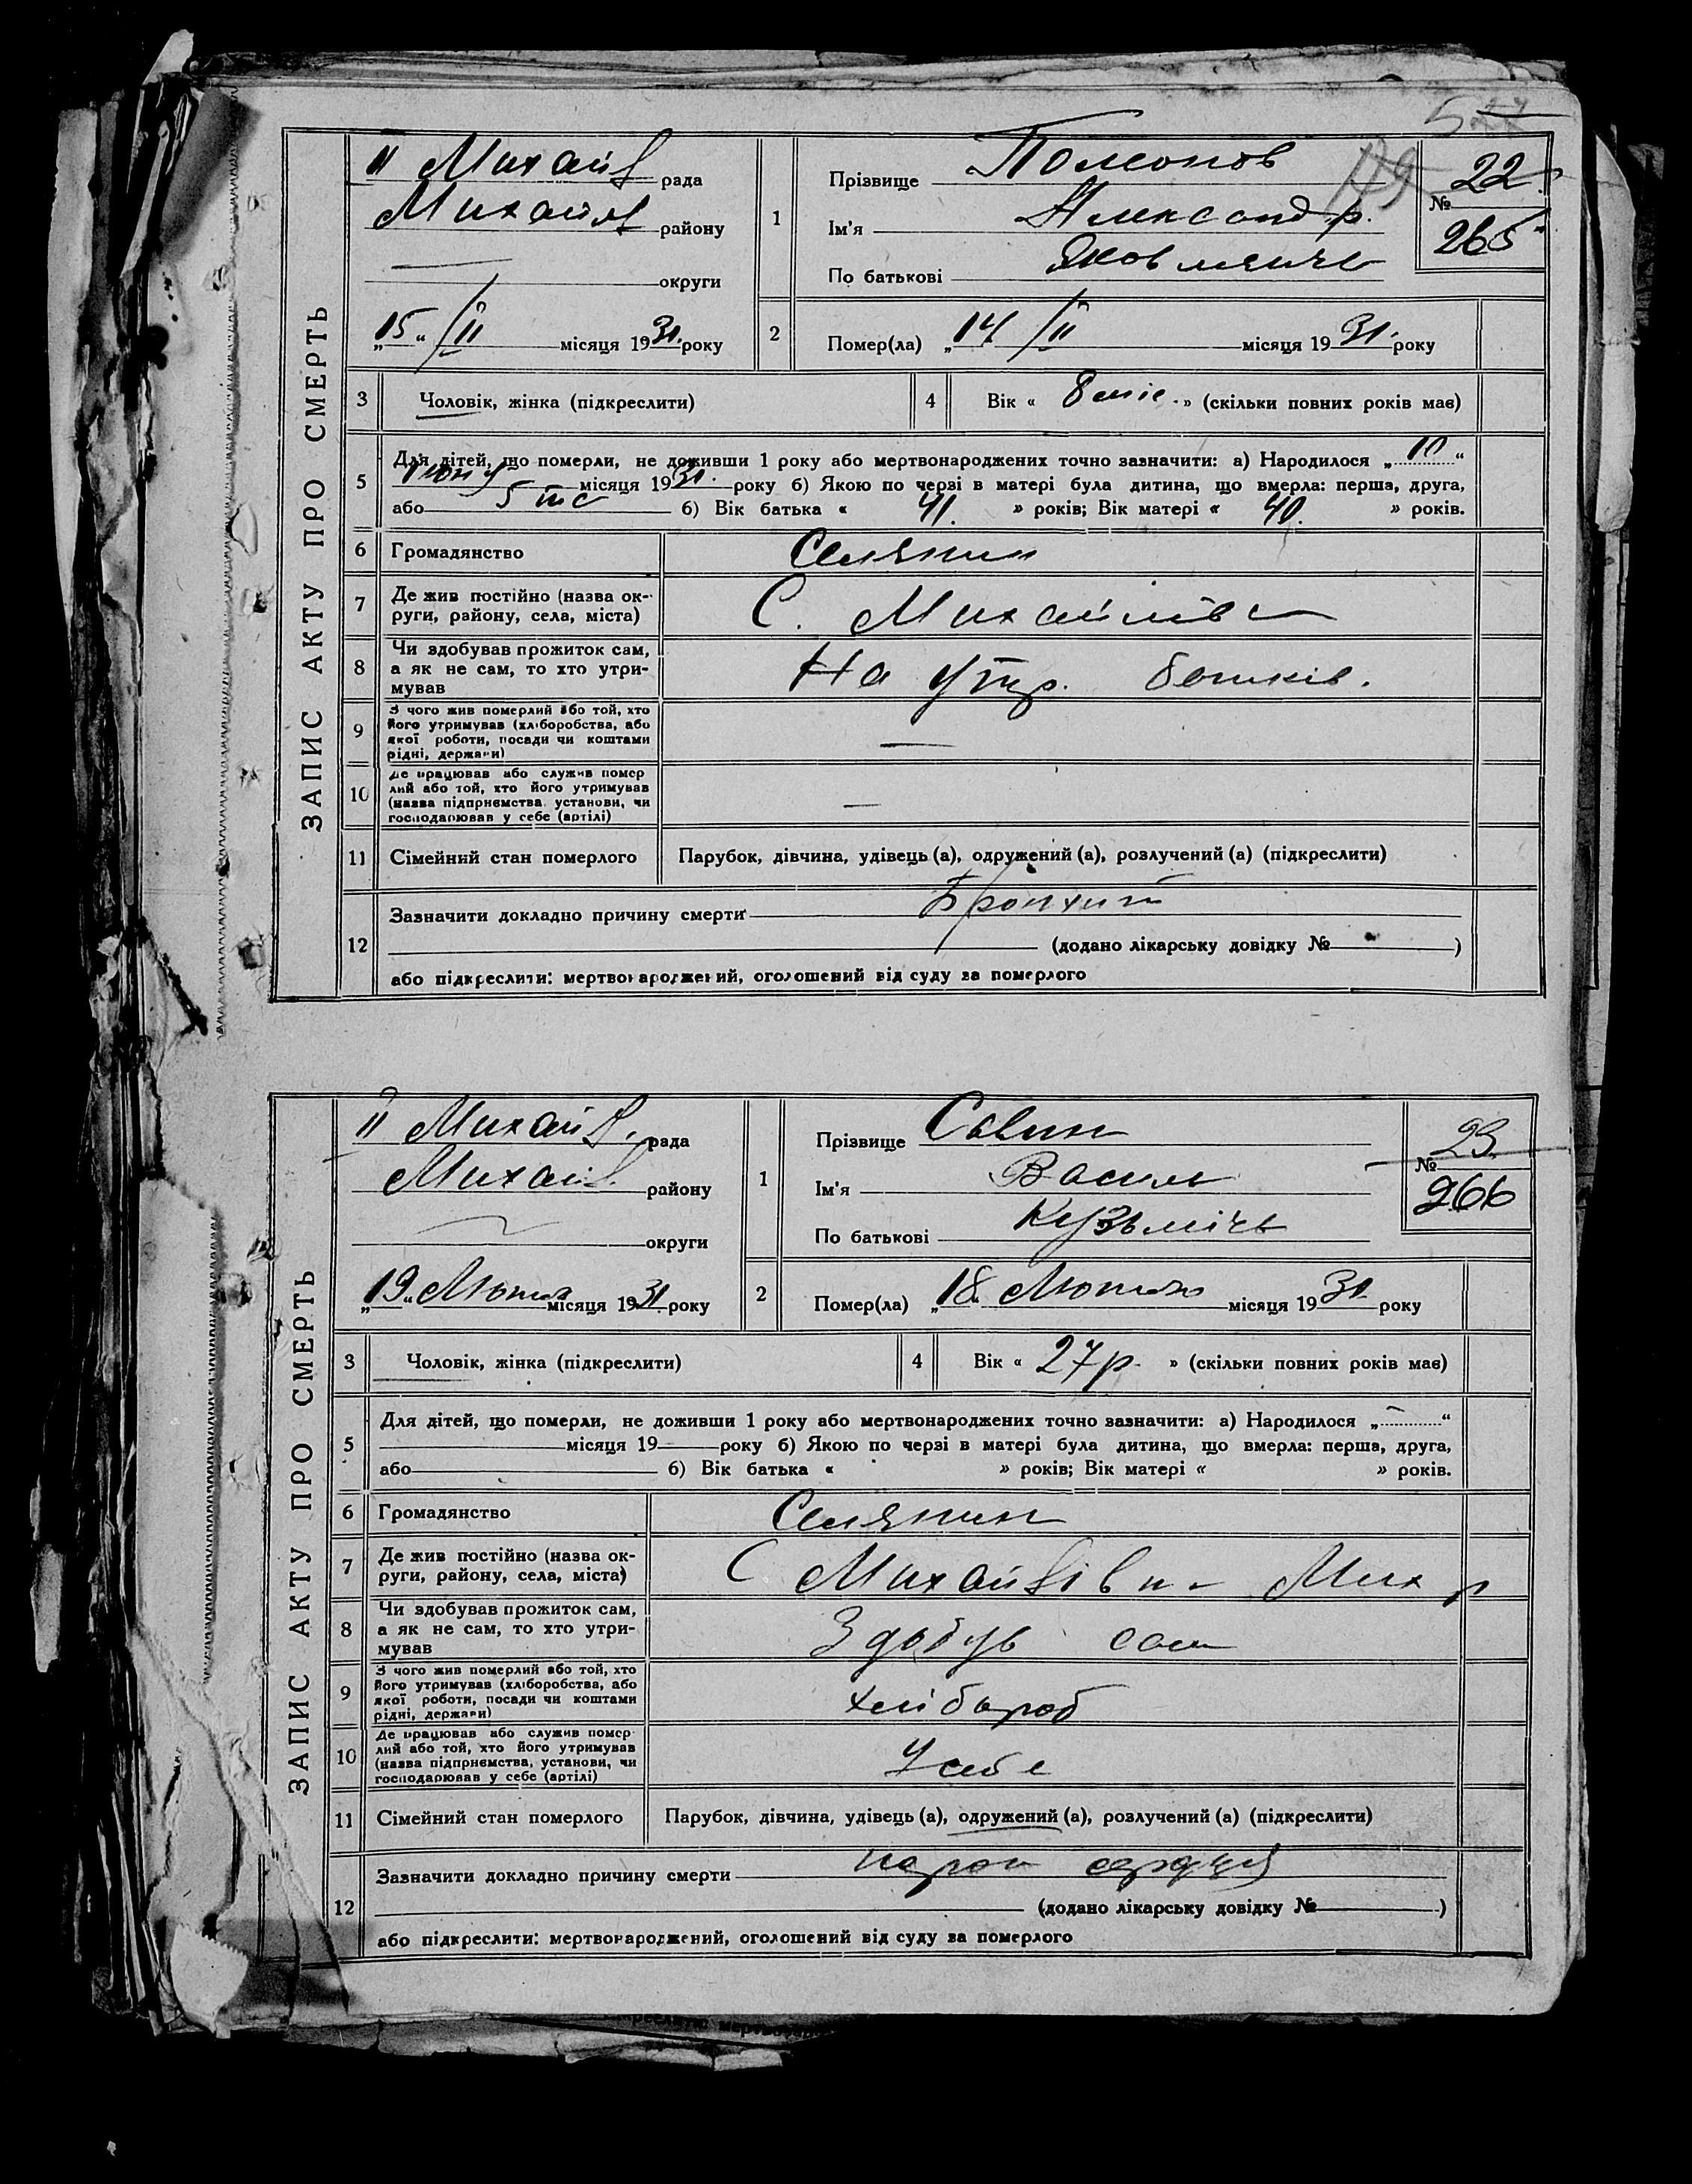 ЗАПИС АКТУ ПРО СМЕРТЬ
II Михайл рада
Михайл району
округи
„15“ /II місяця 1931. року
1 Прізвище
Ім'я Александр.
По батькові Яковлевичь
№ 22.
265
2 Помер(ла) „14 /II місяця 1931. року
3 Чоловік, жінка (підкреслити)
4 Вік « 8 міс. » (скільки повних років має)
5 Для дітей, що померли, не доживши 1 року або мертвонароджених точно зазначити: а) Народилося „10“
Июну місяця 1930. року б) Якою по черзі в матері була дитина, що вмерла: перша, друга,
або 5 б) Вік батька « 41. » років; Вік матері « 40. » років.
6 Громадянство Селянин
7 Де жив постійно (назва ок-
руги, району, села, міста) С. Михайлівк
8 Чи здобував прожиток сам,
а як не сам, то хто утри-
мував На утр. батьків.
9 З чого жив померлий або той, хто
його утримував (хліборобства, або
якої роботи, посади чи коштами
рідні, держави) —
10 Де працював або служив помер
лий або той, хто його утримував
(назва підприємства, установи, чи
господарював у себе (артілі) —
11 Сімейний стан померлого Парубок, дівчина, удівець (а), одружений (а), розлучений (а) (підкреслити)
12 Зазначити докладно причину смерти Бронхит
(додано лікарську довідку № )
або підкреслити: мертвонароджений, оголошений від суду за померлого
ЗАПИС АКТУ ПРО СМЕРТЬ
II Михайл. рада
Михайл. району
округи
„19“ Лютого місяця 1931. року
1 Прізвище Савин
Ім'я Василь
По батькові Кузьмічь
№ 23.
266
2 Помер(ла) „18. Лютого місяця 1931. року
3 Чоловік, жінка (підкреслити)
4 Вік « 27 р. » (скільки повних років має)
5 Для дітей, що померли, не доживши 1 року або мертвонароджених точно зазначити: а) Народилося „ “
місяця 19 року б) Якою по черзі в матері була дитина, що вмерла: перша, друга,
або б) Вік батька « » років; Вік матері « » років.
6 Громадянство Селянин
7 Де жив постійно (назва ок-
руги, району, села, міста) С Михайлівк- Мих р
8 Чи здобував прожиток сам,
а як не сам, то хто утри-
мував Здобув сам
9 З чого жив померлий або той, хто
його утримував (хліборобства, або
якої роботи, посади чи коштами
рідні, держави) хлібороб
10 Де працював або служив помер
лий або той, хто його утримував
(назва підприємства, установи, чи
господарював у себе (артілі) У себе
11 Сімейний стан померлого Парубок, дівчина, удівець (а), одружений (а), розлучений (а) (підкреслити)
12 Зазначити докладно причину смерти порок сердця
(додано лікарську довідку № )
або підкреслити: мертвонароджений, оголошений від суду за померлого